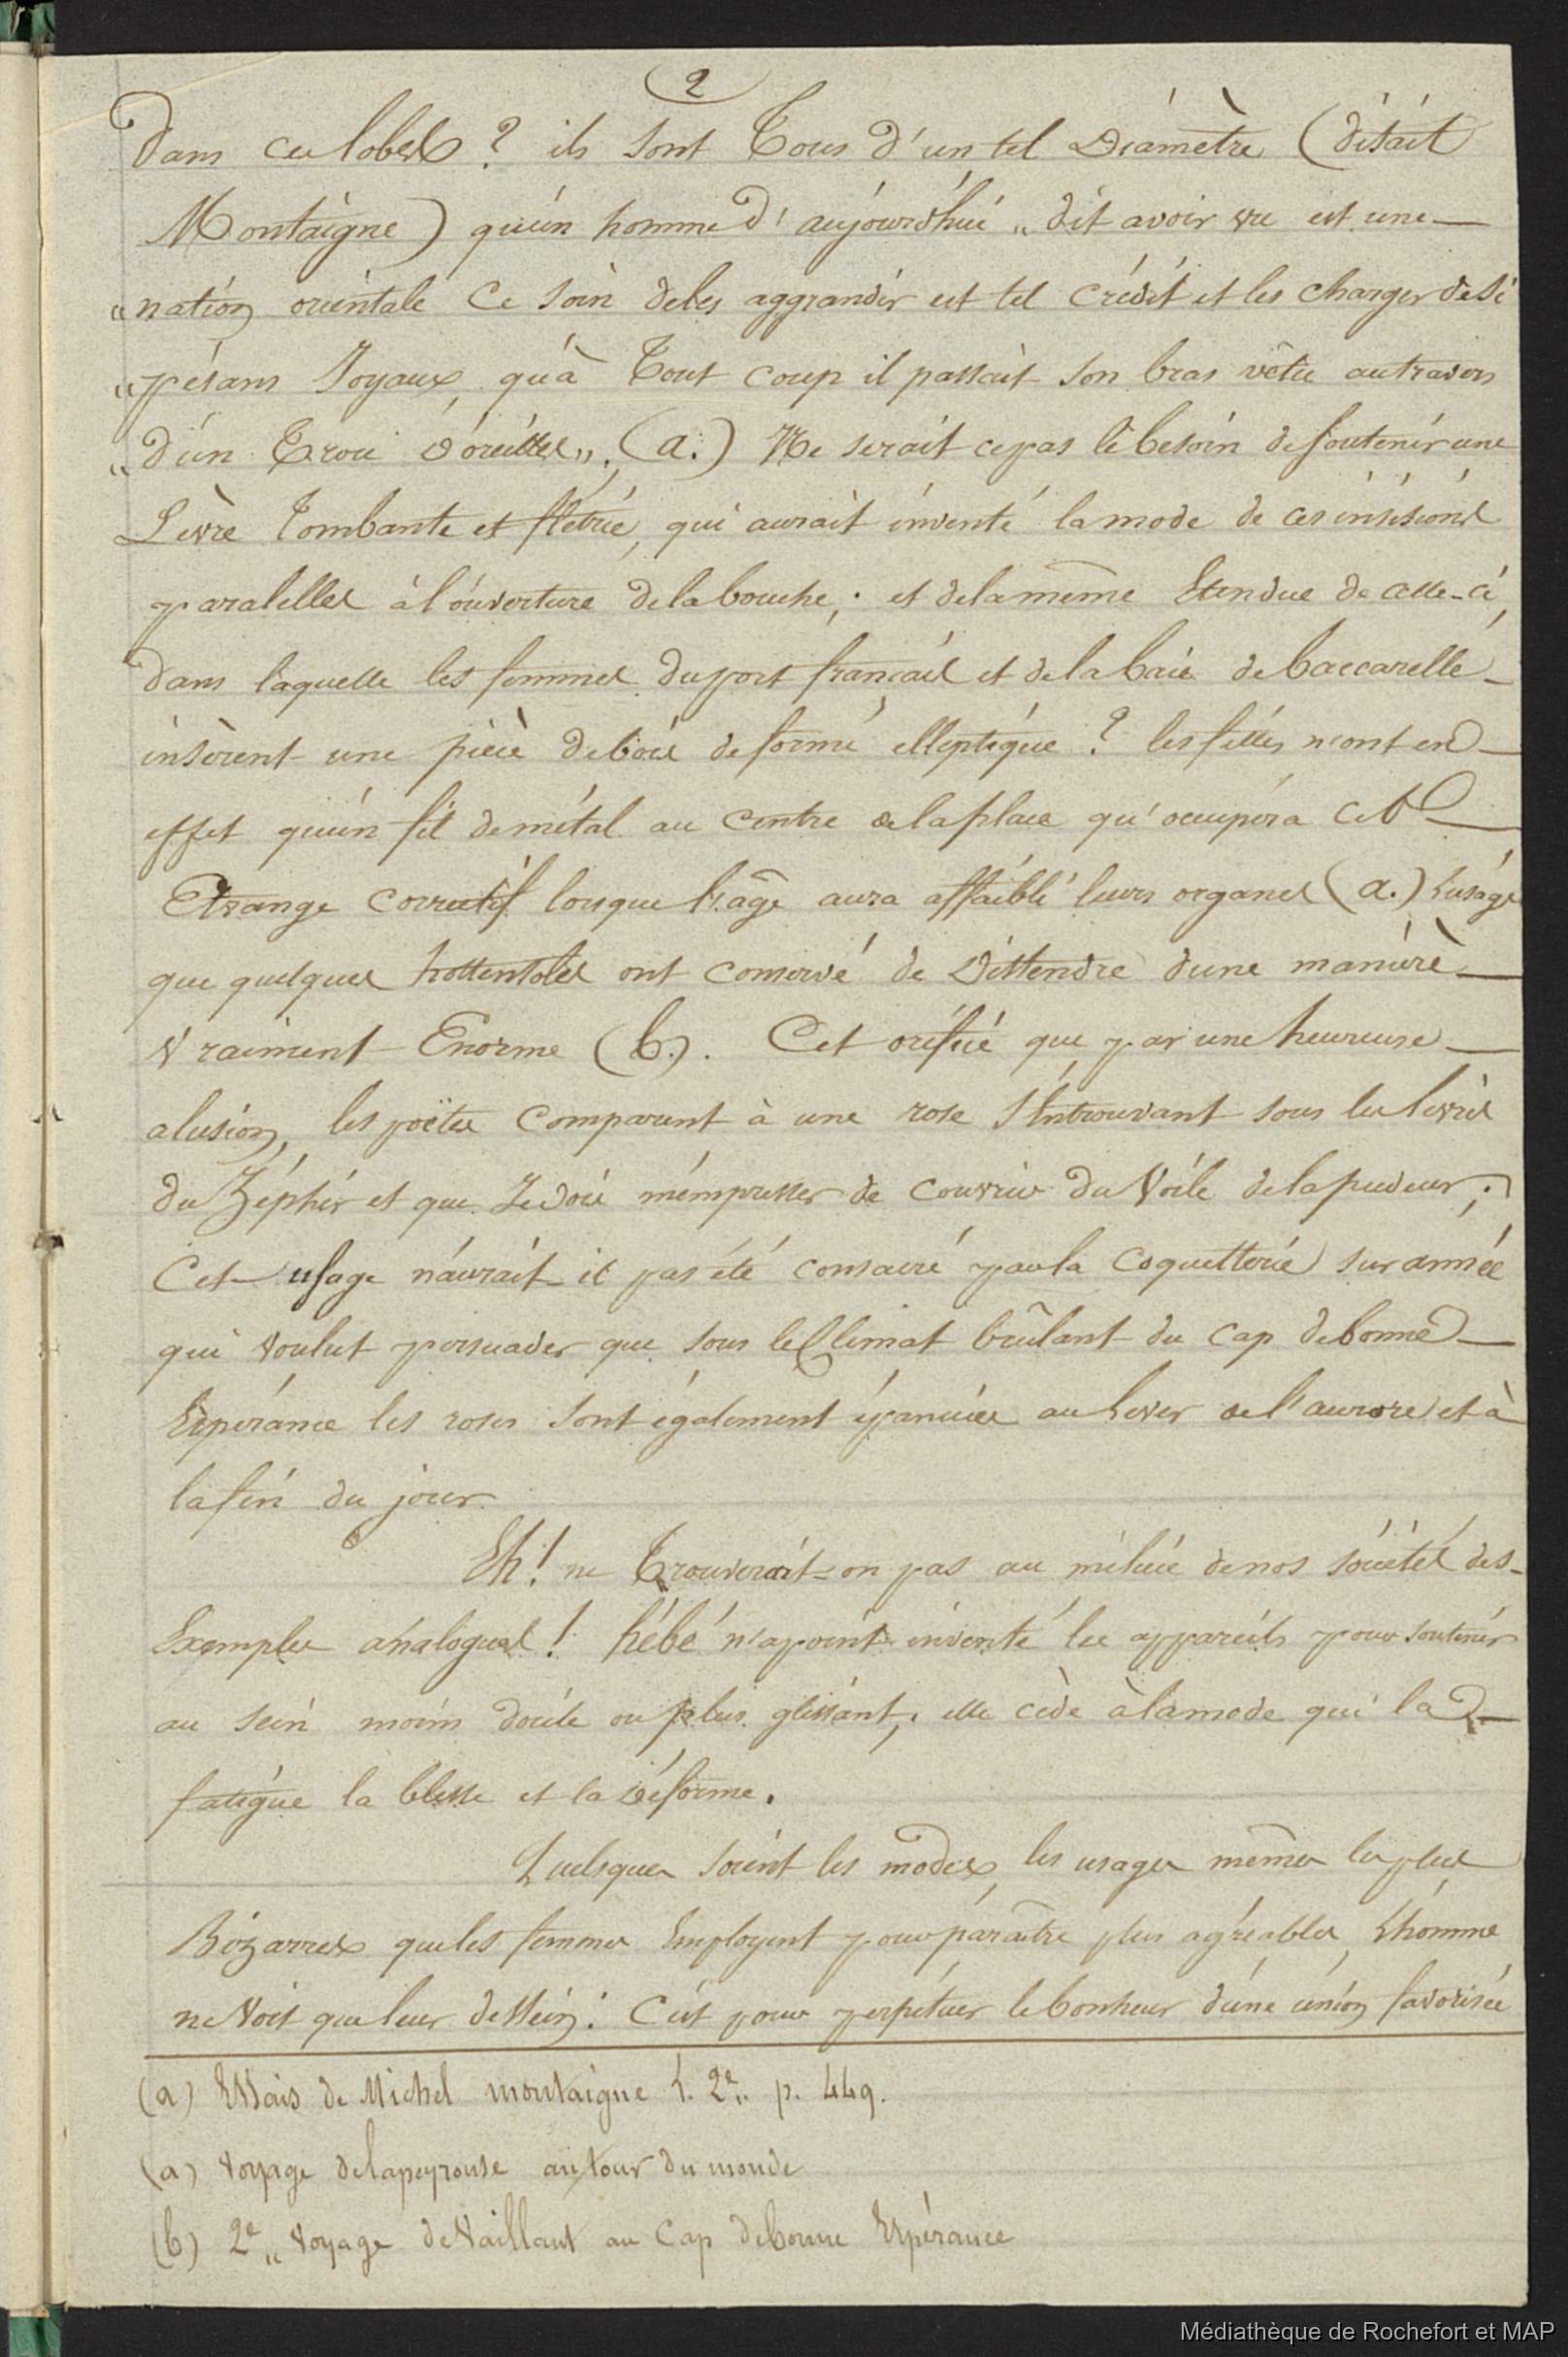 2
Dans ces lobes ? ils sont Tous d'un tel Diamètre (disait
Montaigne) qu'un homme d'aujourd'hui „ dit avoir vu est une
„ nation orientale Ce soin de les aggrandir est tel crédit et les charger de si
„ pésans Joyaux, qu'à Tout coup il passait son bras vêtu au travers
„ d'un Trou d'oreilles „. (a.) Ne serait ce pas le besoin de soutenir une
Lèvre Tombante et flétrie, qui aurait inventé la mode de ces insisions
paralelles à l'ouverture de la bouche ; et de la même Etendue de celle-ci,
dans laquelle les femmes du port français et de la baie de baccarelle
insèrent une pièce de bois de forme elleptique ? les filles n'ont en
effet qu'un fil de métal au centre de la place qu'occupera cet
Etrange correctif lorsque l'âge aura affaibli leurs organes (a.) L'usage
que quelques hottentotes ont conservé de Distendre d'une manière
vraiment Enorme (b.). Cet orifice que par une heureuse
alusion, les poëtes comparent à une rose s'Entrouvant sous les lèvres
du Zéphir et que Je dois m'empresser de couvrir du Voile de la pudeur ;
Cet usage n'aurait-il pas été consacré par la coquetterie surannée
qui voulut persuader que sous le Climat brûlant du cap de bonne
Espérance les roses sont également épanuies au Lever de l'aurore et à
la fin du jour.
Eh ! ne Trouverait-on pas au milieu de nos sociétés des
Exemples analogues ! hébé n'a point inventé les appareils pour soutenir
au sein moins docile ou plus glissant ; elle cède à la mode qui la
fatigue la blesse et la déforme.
Quelques soient les modes, les usages mêmes les plus
Bizarres que les femmes Employent pour paraître plus agréables, L'homme
ne Voit que leur dessein : C'est pour perpétuer le bonheur d'une union favorisée
(a) Essais de Michel montaigne t. 2e. p. 449.
(a) Voyage de lapeyrouse autour du monde
(b) 2e „ Voyage de Vaillant au Cap de bonne Espérance
Médiathèque de Rochefort et MAP